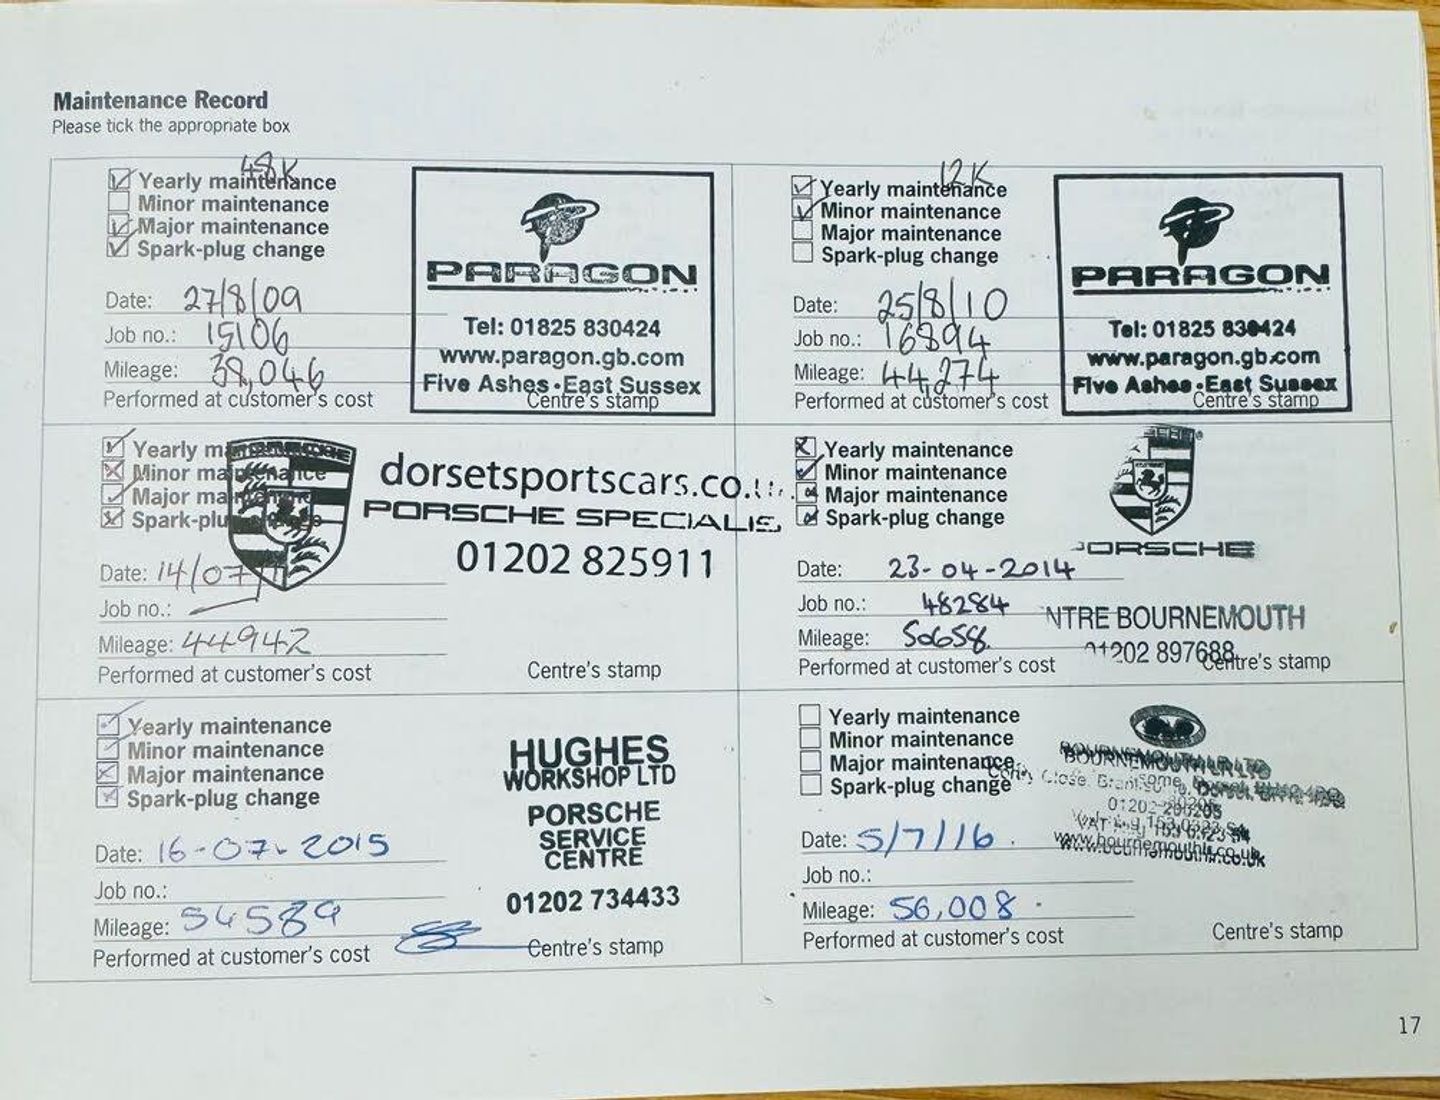 Maintenance Record
Please tick the appropriate box
48K
Yearly maintenance
Minor maintenance
Major maintenance
Spark-plug change
Date: 27/8/09
Job no.: 15106
Mileage: 38,046
Performed at customer's cost
PARAGON
Tel: 01825 830424
www.paragon.gb.com
Five Ashes • East Sussex
Centre's stamp
12K
Yearly maintenance
Minor maintenance
Major maintenance
Spark-plug change
Date: 25/8/10
Job no.: 16894
Mileage: 44,274
Performed at customer's cost
PARAGON
Tel: 01825 830424
www.paragon.gb.com
Five Ashes • East Sussex
Centre's stamp
Yearly maintenance
Minor maintenance
Major maintenance
Spark-plug change
Date: 14/07/
Job no.:
Mileage: 44942
Performed at customer's cost
dorsetsportscars.co.
PORSCHE SPECIALIS
01202 825911
Centre's stamp
Yearly maintenance
Minor maintenance
Major maintenance
Spark-plug change
Date: 23-04-2014
Job no.: 48284
Mileage: 50658
Performed at customer's cost
PORSCHE
NTRE BOURNEMOUTH
01202 897688
Centre's stamp
Yearly maintenance
Minor maintenance
Major maintenance
Spark-plug change
Date: 16-07-2015
Job no.:
Mileage: 54589
Performed at customer's cost
HUGHES
WORKSHOP LTD
PORSCHE
SERVICE
CENTRE
01202 734433
Centre's stamp
Yearly maintenance
Minor maintenance
Major maintenance
Spark-plug change
Date: 5/7/16
Job no.:
Mileage: 56,008
Performed at customer's cost
BOURNEMOUTH LR LTD
www.bournemouthlr.co.uk
Centre's stamp
17